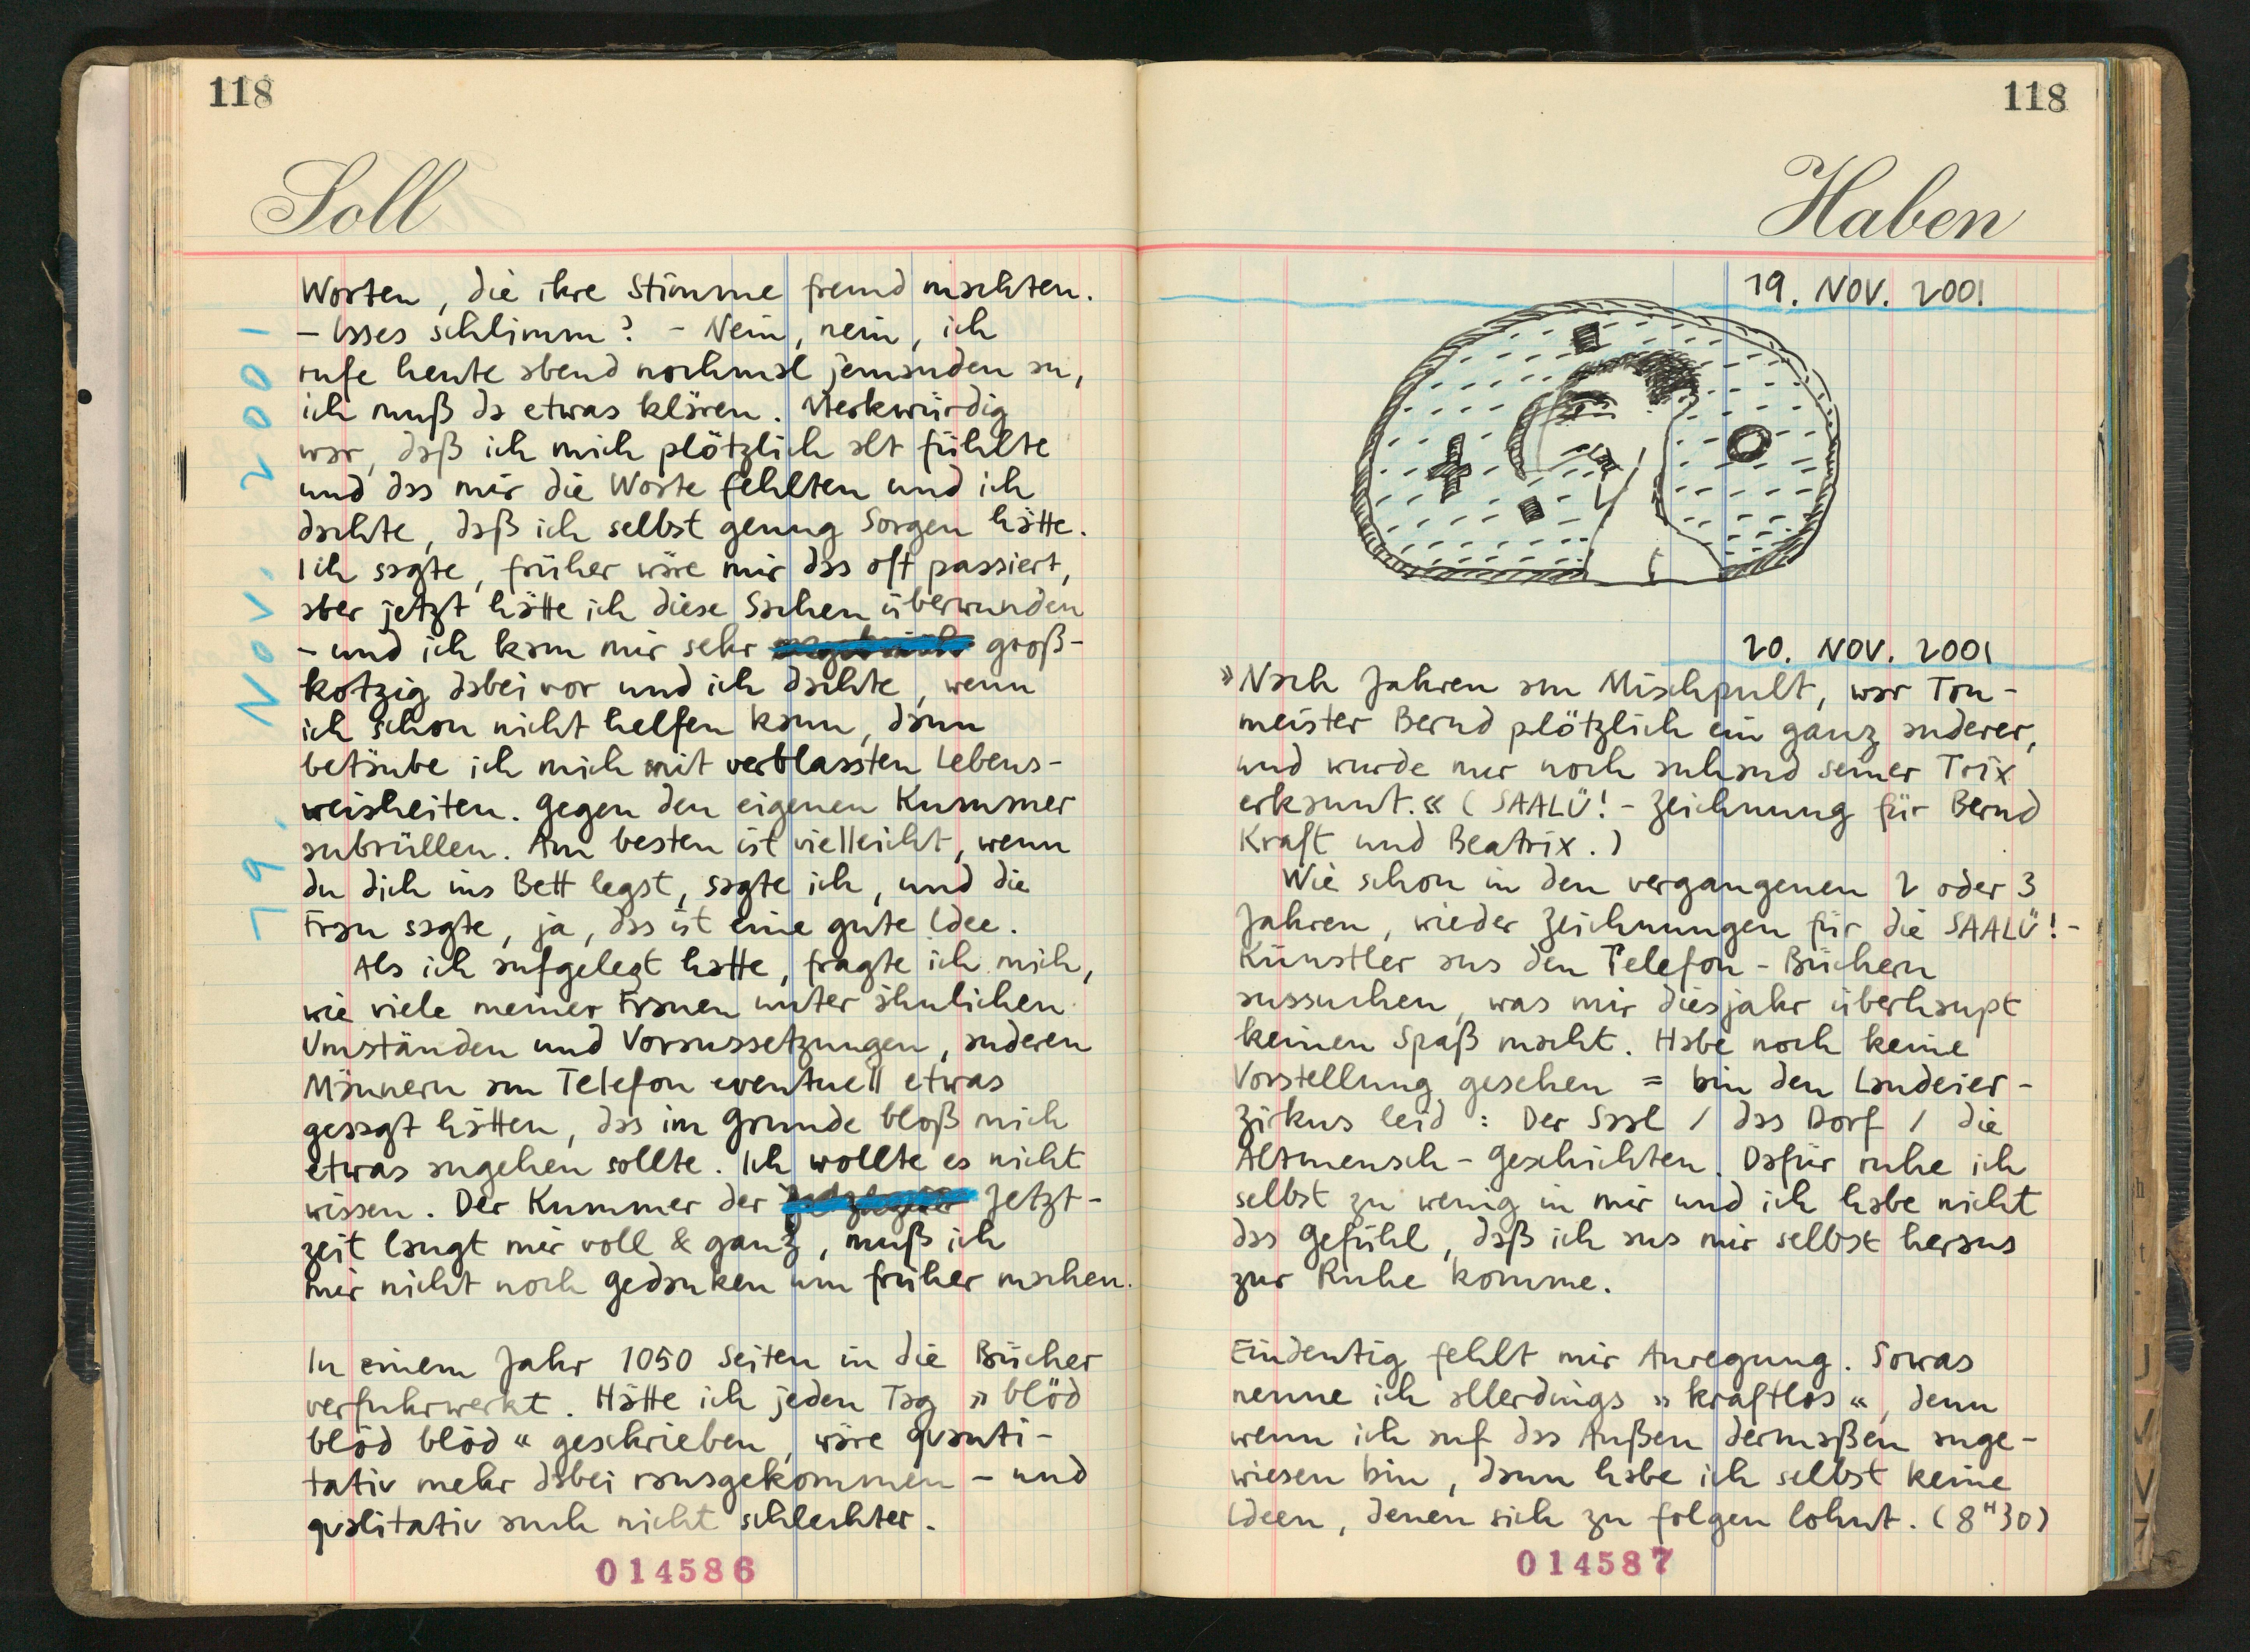 118
Soll
19. Nov. 2001
Worten, die ihre Stimme fremd machten.
– Isses schlimm? – Nein, nein, ich
rufe heute abend nochmal jemanden an,
ich muß da etwas klären. Merkwürdig
war, daß ich mich plötzlich alt fühlte
und das mir die Worte fehlten und ich
dachte, daß ich selbst genug Sorgen hätte.
Ich sagte, früher wäre mir das oft passiert,
aber jetzt hätte ich diese Sachen überwunden
– und ich kam mir sehr groß-
kotzig dabei vor und ich dachte, wenn
ich schon nicht helfen kann, dann
betäube ich mich mit verblassten Lebens-
weisheiten. Gegen den eigenen Kummer
anbrüllen. Am besten ist vielleicht, wenn
du dich ins Bett legst, sagte ich, und die
Frau sagte, ja, das ist eine gute Idee.
Als ich aufgelegt hatte, fragte ich mich,
wie viele meiner Frauen unter ähnlichen
Umständen und Voraussetzungen, anderen
Männern am Telefon eventuell etwas
gesagt hätten, das im Grunde bloß mich
etwas angehen sollte. Ich wollte es nicht
wissen. Der Kummer der Jetzt-
zeit langt mir voll & ganz, muß ich
mir nicht noch Gedanken um früher machen.
In einem Jahr 1050 Seiten in die Bücher
verfuhrwerkt. Hätte ich jeden Tag »blöd
blöd blöd« geschrieben, wäre quanti-
tativ mehr dabei rausgekommen – und
qualitativ auch nicht schlechter.
014586
118
Haben
19. NOV. 2001
20. NOV. 2001
»Nach Jahren am Mischpult, war Ton-
meister Bernd plötzlich ein ganz anderer,
und wurde nur noch anhand seiner Trix
erkannt.« (SAALÜ!-Zeichnung für Bernd
Kraft und Beatrix.)
Wie schon in den vergangenen 2 oder 3
Jahren, wieder Zeichnungen für die SAALÜ!-
Künstler aus den Telefon-Büchern
aussuchen, was mir diesjahr überhaupt
keinen Spaß macht. Habe noch keine
Vorstellung gesehen = bin den Landeier-
zirkus leid: Der Saal / das Dorf / die
Altmensch-Geschichten. Dafür ruhe ich
selbst zu wenig in mir und ich habe nicht
das Gefühl, daß ich aus mir selbst heraus
zur Ruhe komme.
Eindeutig fehlt mir Anregung. Sowas
nenne ich allerdings »kraftlos«, denn
wenn ich auf das Außen dermaßen ange-
wiesen bin, dann habe ich selbst keine
Ideen, denen sich zu folgen lohnt. (8 H 30)
014587